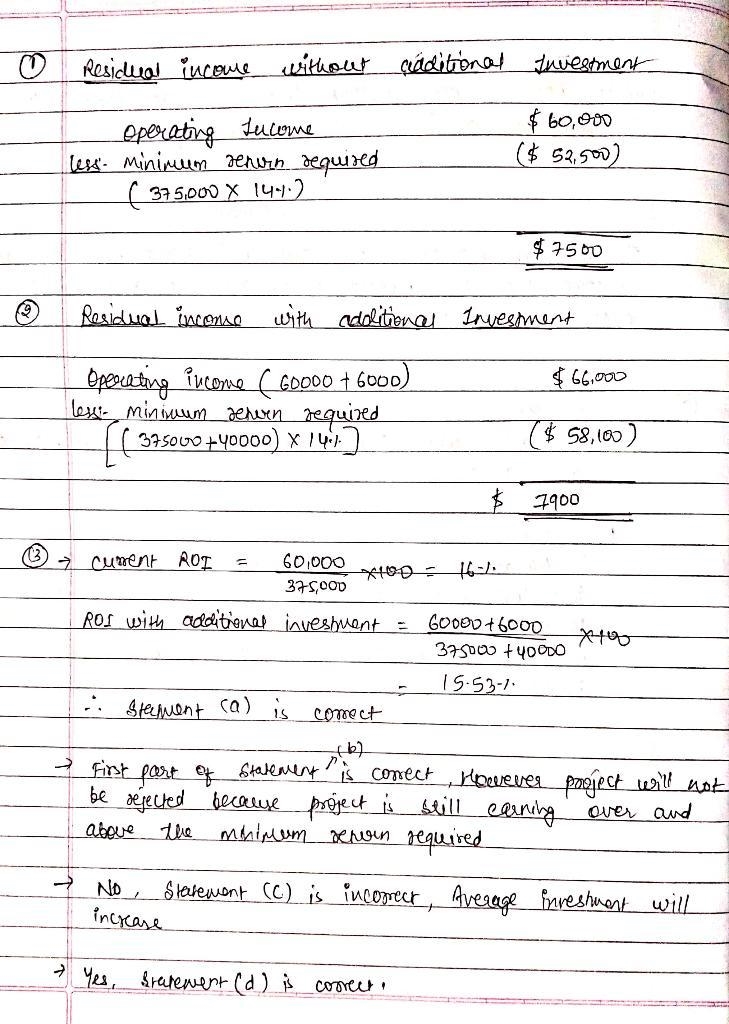 ① Residual income without additional Investment
Operating Income $ 60,000
less:- Minimum return required ($ 52,500)
( 375,000 X 14%)
$ 7500
② Residual income with additional Investment
Operating income ( 60000 + 6000) $ 66,000
less:- Minimum return required
[( 375000 + 40000) X 14%] ($ 58,100)
$ 7900
③ → Current ROI = 60,000 / 375,000 X100 = 16%
ROI with additional investment = 60000+6000 / 375000 +40000 X100
= 15.53%
∴ Statement (a) is correct
→ First part of statement (b) is correct, However project will not
be rejected because project is still earning over and
above the minimum return required
→ No, Statement (C) is incorrect, Average investment will
increase
→ Yes, Statement (d) is correct.